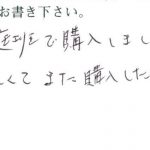 お書き下さい。
で購入しまし
くて また購入した